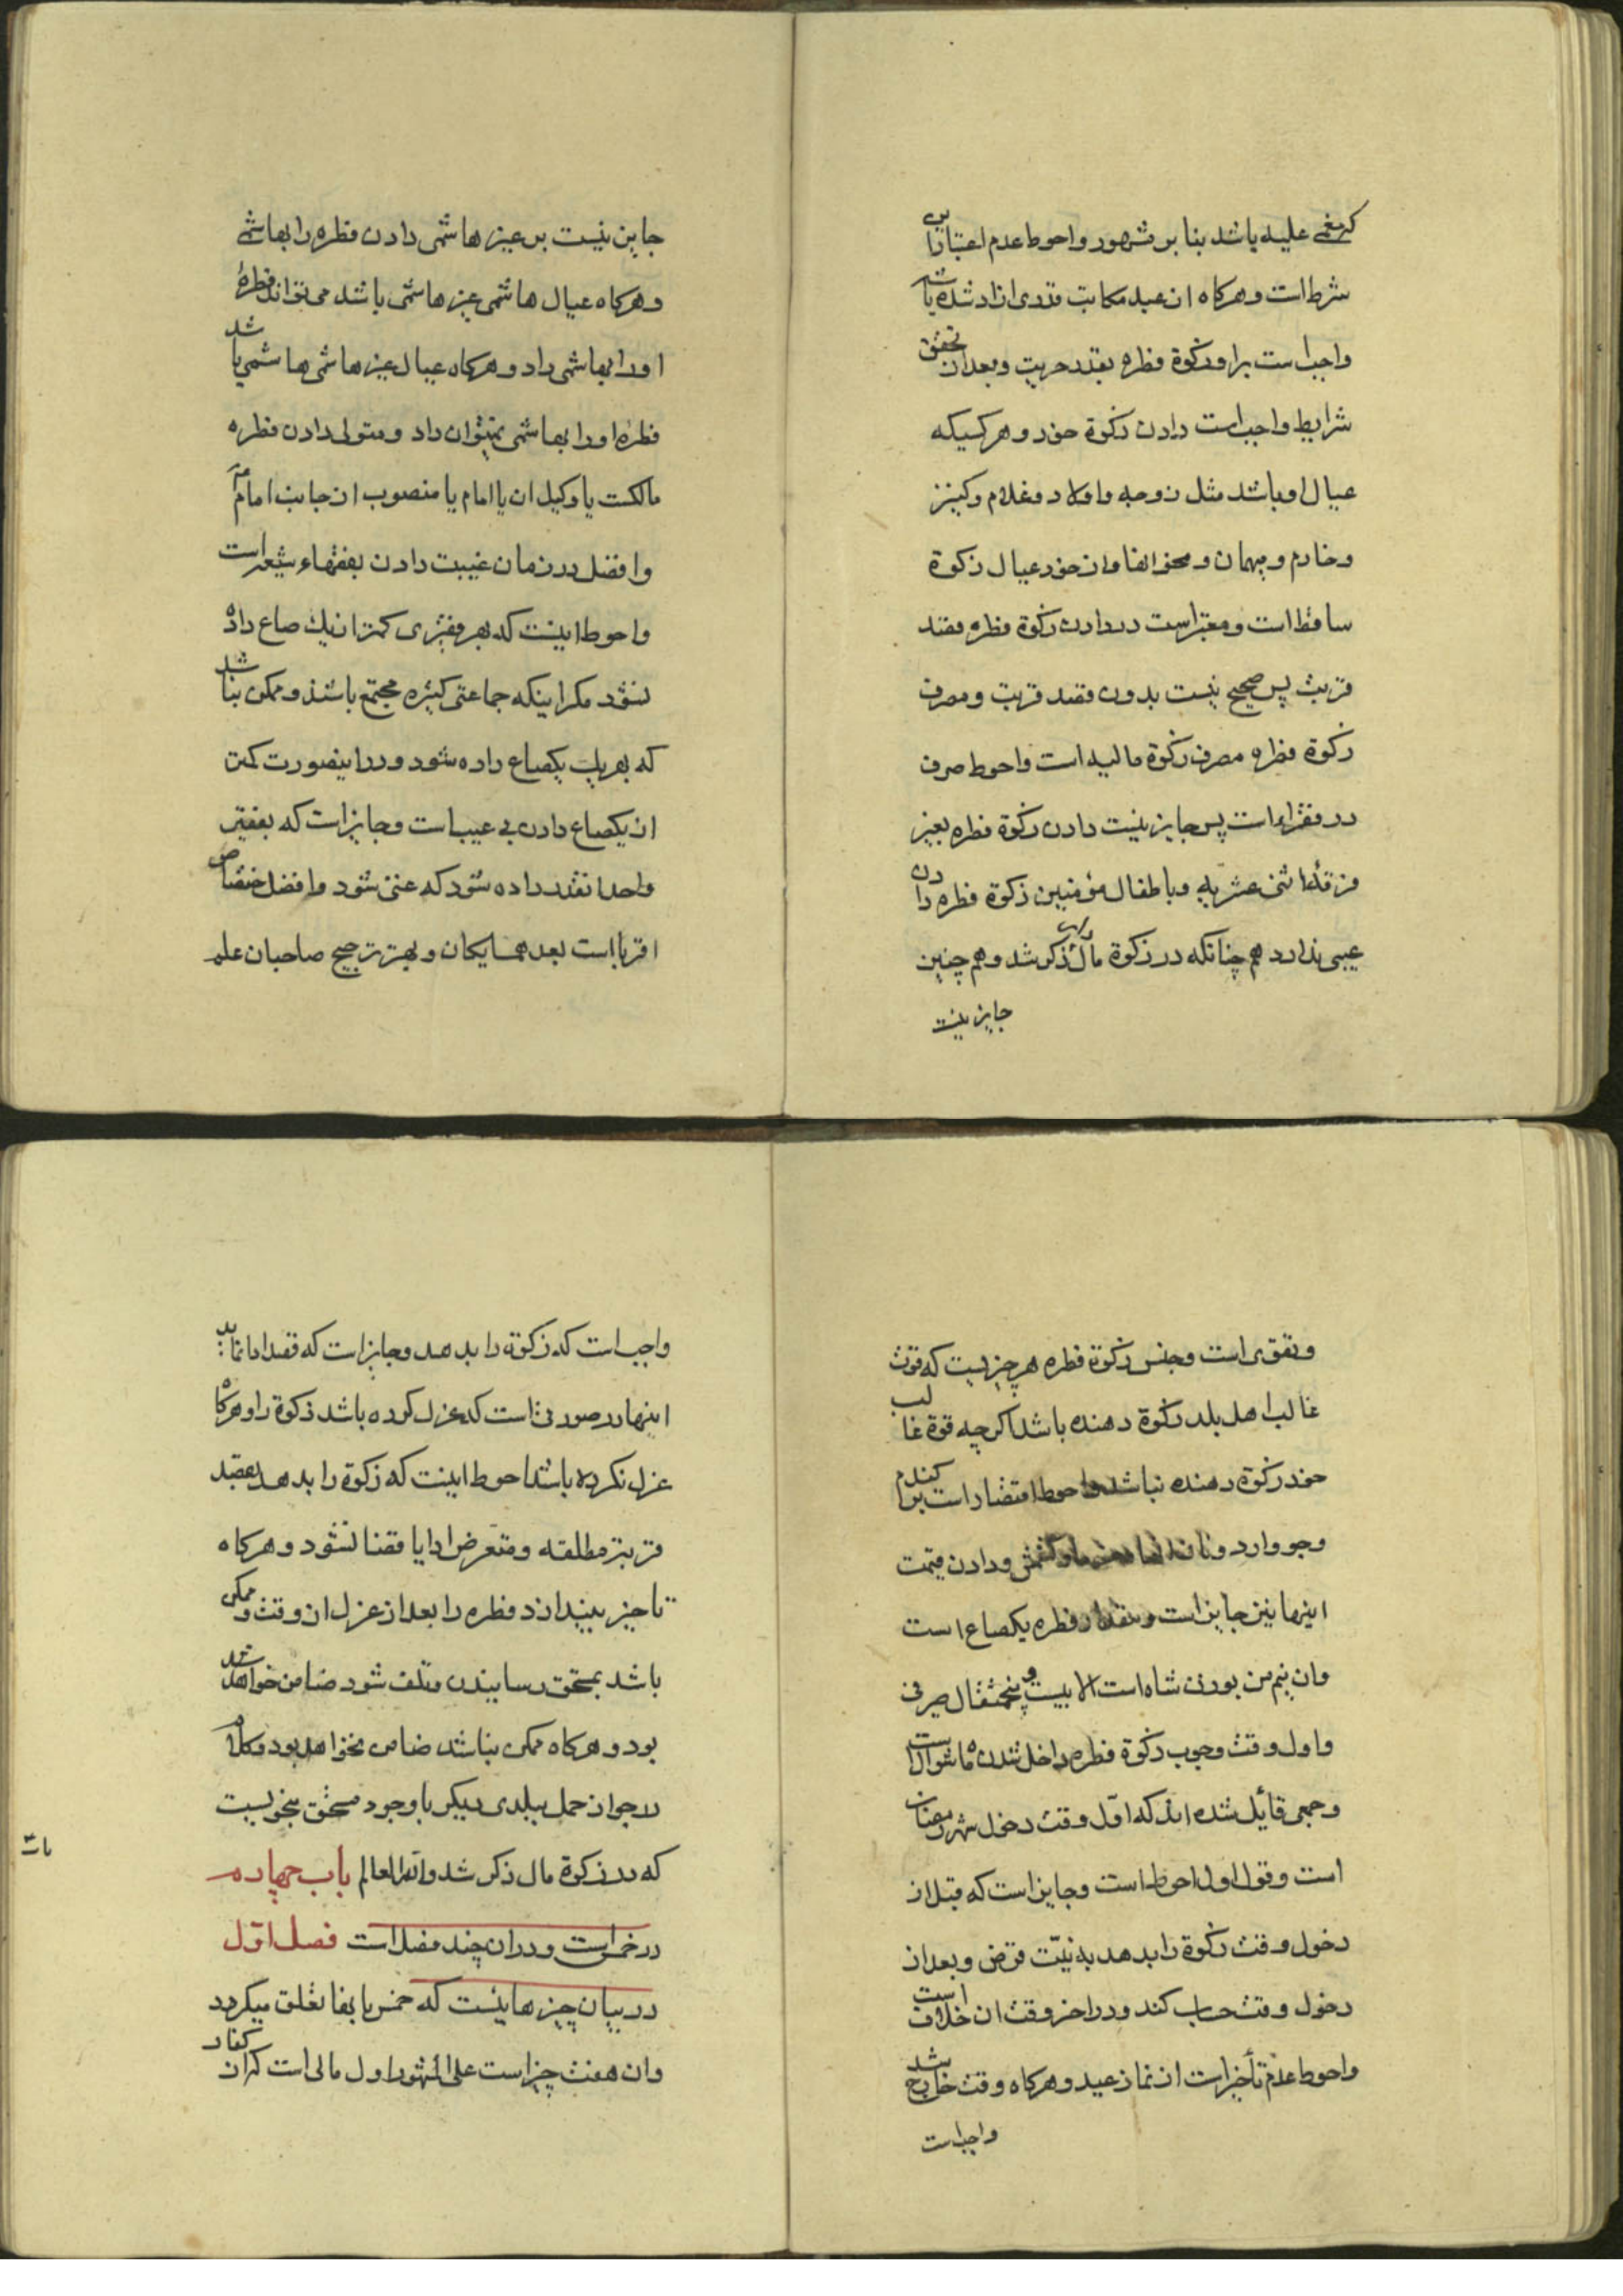 که مغمی علیه باشد بنا بر مشهور و احوط عدم اعتبار این
شرط است و هرکاه از عبد مکاتب قدری ازاد شده باشد
واجب است بر او زکوة فطره بقدر حریت و بعد از تحقق
شرایط واجب است دادن زکوة خود و هر کسیکه
عیال او باشد مثل زوجه و اولاد و غلام و کنیز
و خادم و مهمان و محض انفاق از خود عیال زکوة
ساقط است و معتبر است در دادن زکوة فطره قصد
قربت پس صحیح نیست بدون قصد قربت و مصرف
زکوة فطره مصرف زکوة مالیه است و احوط صرف
در فقراء است پس جایز نیست دادن زکوة فطره بغیر
فرقهٔ اثنی عشریه و باطفال مؤمنین زکوة فطره دادن
عیبی ندارد هم چنانکه در زکوة مال ذکر شد و هم چنین
جایز نیست
جایز نیست بر غیر هاشمی دادن فطره را بهاشمی
و هرکاه عیال هاشمی غیر هاشمی باشد می تواند فطرهٔ
او را بهاشمی داد و هرکاه عیال غیر هاشمی هاشمی باشد
فطرهٔ او را بهاشمی نمیتوان داد و متولی دادن فطره
مالکست یا وکیل ان یا امام یا منصوب از جانب امام
و افضل در زمان غیبت دادن بفقهاء شیعه است
و احوط اینست که بهر فقیری کمتر از یک صاع داده
نشود مکر اینکه جماعتی کثیره مجتمع باشند و ممکن نباشد
که بهر یک یکصاع داده شود و در اینصورت کمتر
از یکصاع دادن بی عیب است و جایز است که بفقیر
واحد انقدر داده شود که غنی شود و افضل اختصاص
اقربا است بعد همسایکان و بهتر ترجیح صاحبان علم
و تقوی است و جنس زکوة فطره هر چیزیست که قوت
غالب اهل بلد زکوة دهنده باشد اکرچه قوة غالب
خود زکوة دهنده نباشد و احوط اقتصار است بر کندم
و جو و ارد و نان و کشمش و دادن قیمت
اینها نیز جایز است و مقدار فطره یکصاع است
و ان نیم من بوزن شاه است الا بیست و پنجمثقال صیرفی
و اول وقت وجوب زکوة فطره داخل شدن ماه شوال است
و جمعی قائل شده اند که اول وقت دخول شهر رمضان
است و قول اول احوط است و جایز است که قبل از
دخول وقت زکوة را بدهد به نیّت قرض و بعد از
دخول وقت حساب کند و در اخر وقت ان خلاف است
و احوط عدم تأخیر است از نماز عید و هرکاه وقت خارج شد
واجب است
واجب است که زکوة را بدهد و جایز است که قصد ادا نماید
اینها در صورتی است که عزل کرده باشد زکوة را و هرکاه
عزل نکرده باشد احوط اینست که زکوة را بدهد بقصد
قربة مطلقه و متعرض ادا یا قضا نشود و هرکاه
تاخیر بیندازد فطره را بعد از عزل از وقت و ممکن
باشد بمستحق رسانیدن و تلف شود ضامن خواهد شد
بود و هرکاه ممکن نباشد ضامن نخواهد بود و کلام
در جواز حمل ببلدی دیکر با وجود مستحق بنحویست
که در زکوة مال ذکر شد والله العالم باب چهارم
در خمس است و در ان چند فصل است فصل اول
در بیان چیزهائیست که خمس بانها تعلق میکیرد
و ان هفت چیز است علی المشهور اول مالی است که از کفار